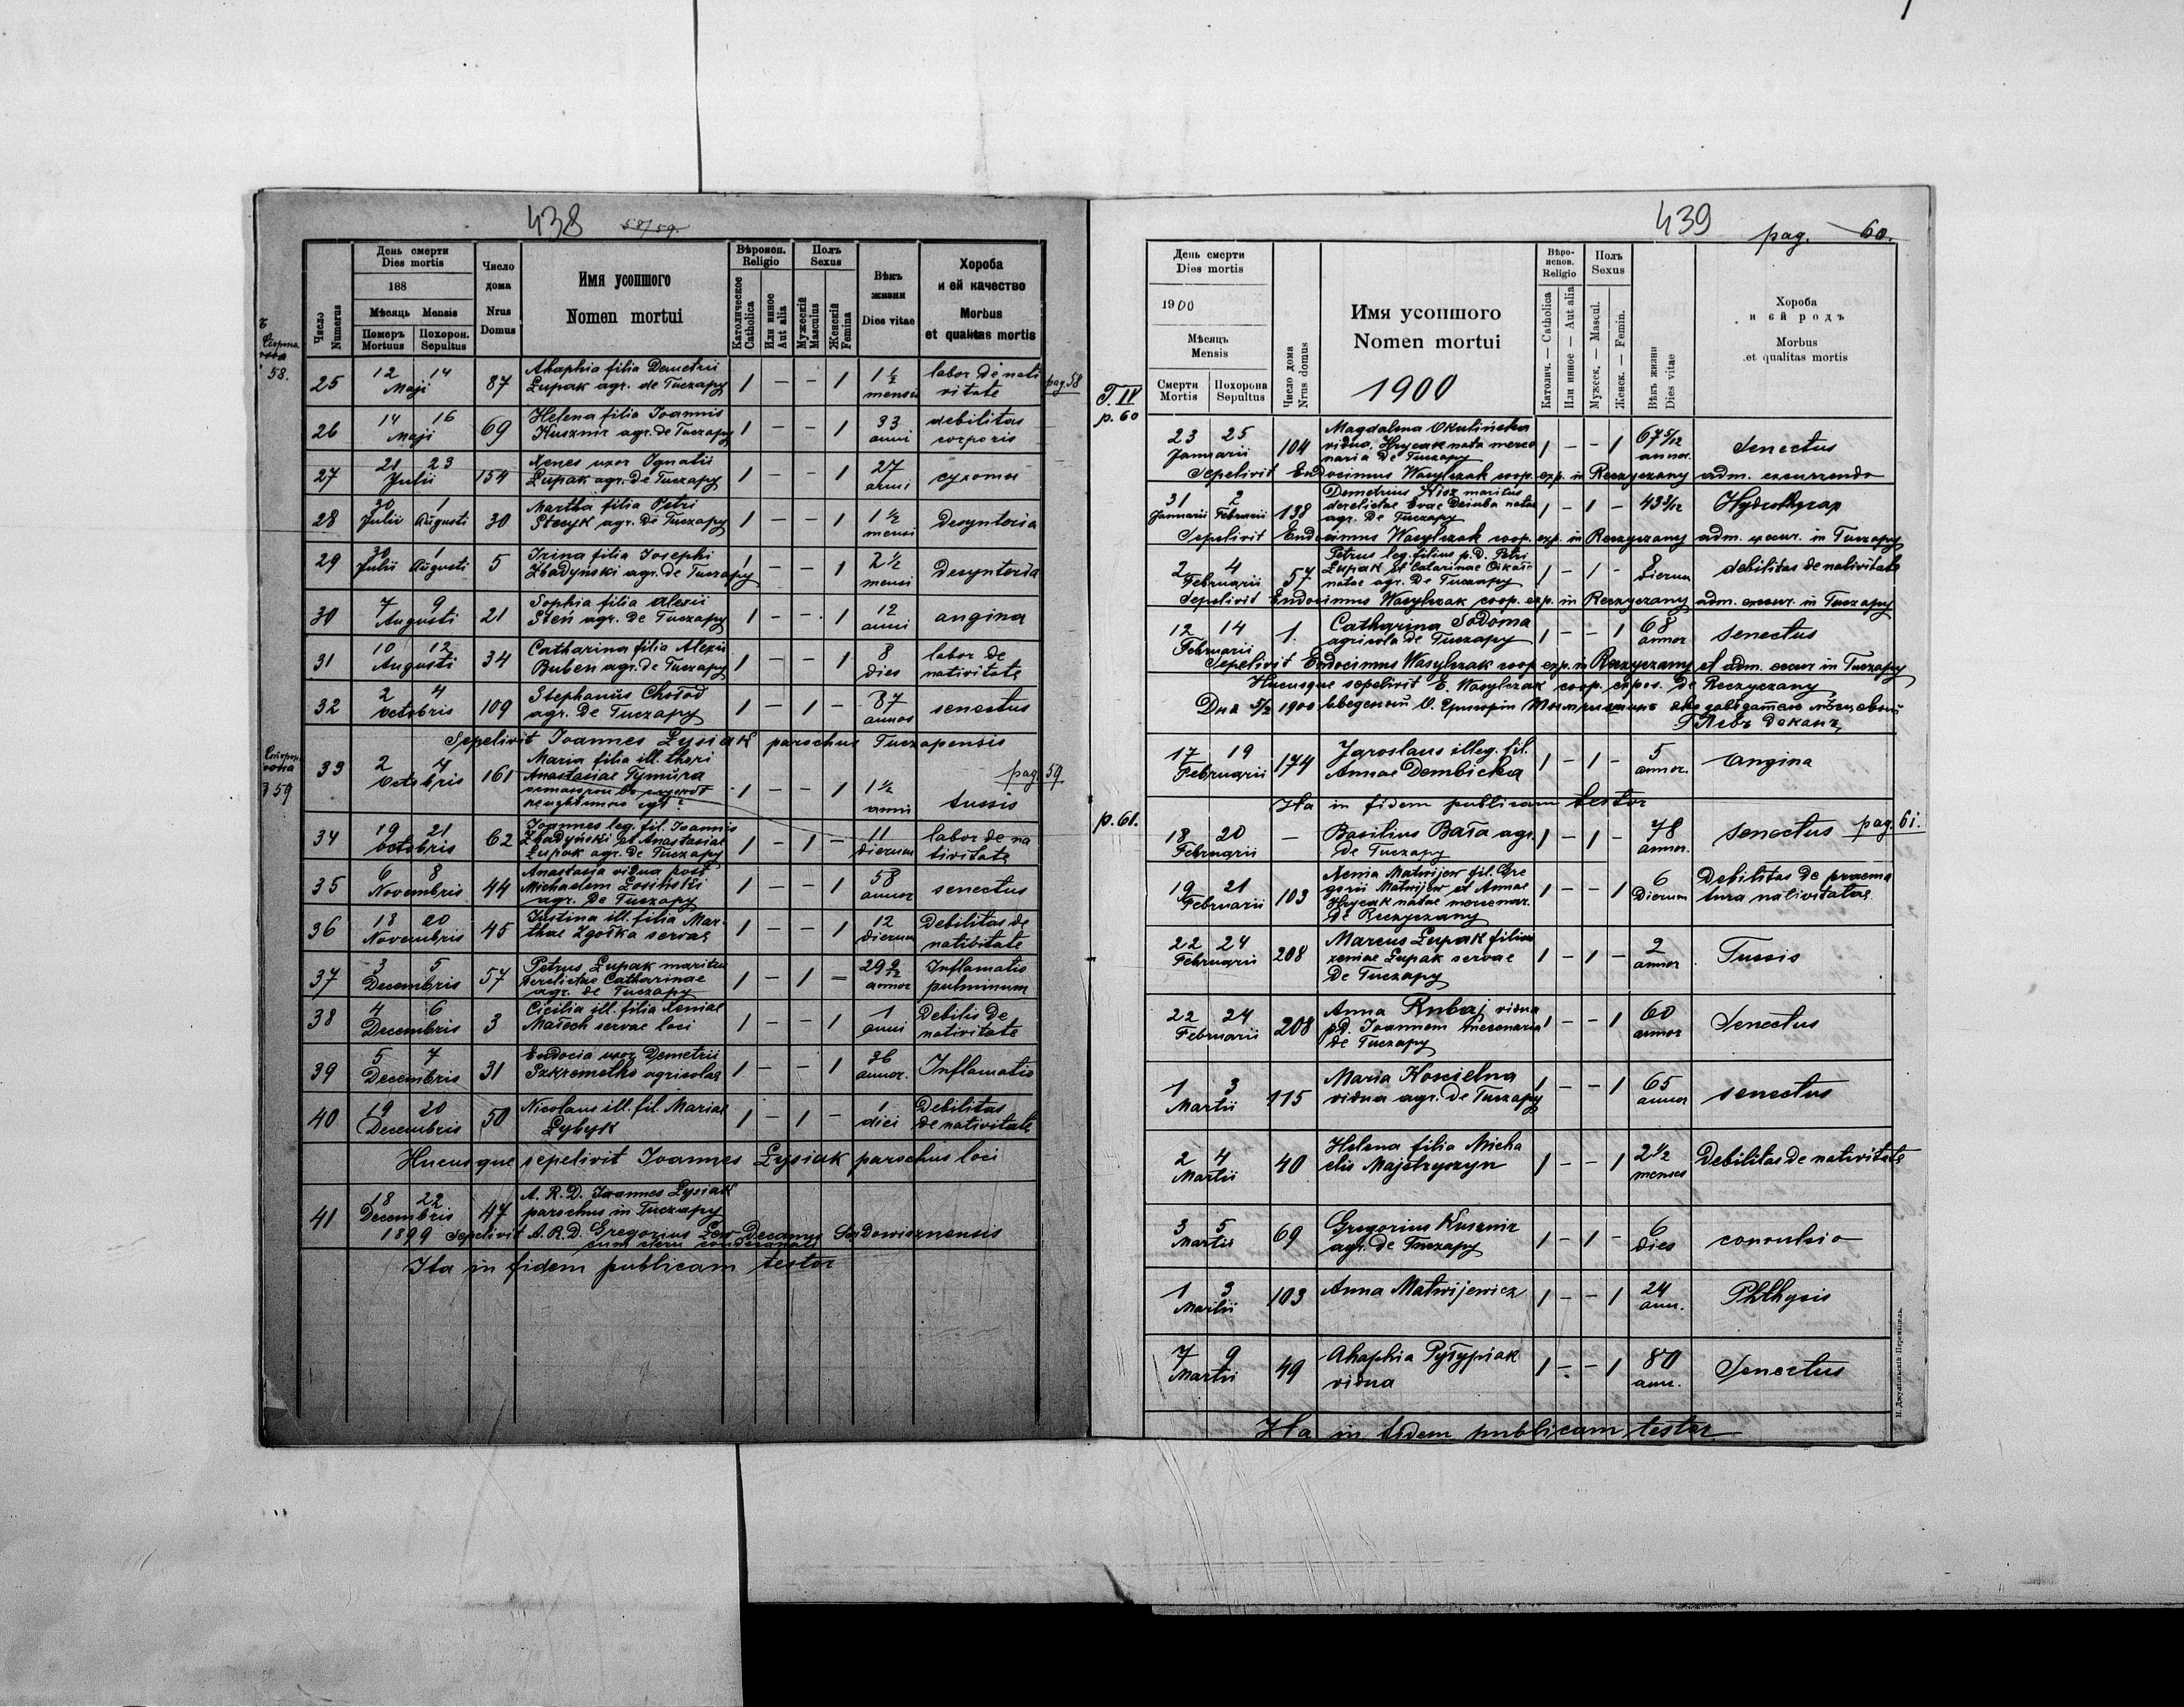 438 58/59.
День смерти
Dies mortis
188
Мѣсяць Mensis
Померъ Похорон.
Mortuus Sepultus
Число
Numerus
Число
дома
Nrus
Domus
Имя усопшого
Nomen mortui
Вѣроисп.
Religio
Католическое
Catholica
Или инное
Aut alia
Полъ
Sexus
Мужескій
Masculus
Женскій
Femina
Вѣкъ
жизни
Dies vitae
Хороба
и ей качество
Morbus
et qualitas mortis
58.
25 12 14 Maji 87 Ahaphia filia Demetrii
Łupak agr. de Tuczapy 1 – – 1 1 ½ mensis labor de nati
vitate pag. 58
26 14 16 Maji 69 Helena filia Joannis
Kusznir agr. de Tuczapy 1 – – 1 33 anni debilitas
corporis
27 21 23 Julii 154 Xenes uxor Ignatii
Łupak agr. de Tuczapy 1 – – 1 27 anni
28 30 Julii 1 Augusti 30 Martha filia Petri
Stecyk agr. de Tuczapy 1 – – 1 1 ½ mensi desynteria
29 30 Julii 1 Augusti 5 Irina filia Josephi
Zbadyński agr. de Tuczapy 1 – – 1 2 ½ mensi desynteria
30 7 9 Augusti 21 Sophia filia Alexii
Steń agr. de Tuczapy 1 – – 1 12 anni angina
31 10 12 Augusti 34 Catharina filia Alexii
Buben agr. de Tuczapy 1 – – 1 8 dies labor de
nativitate
32 2 4 octobris 109 Stephanus Chołod
agr. de Tuczapy 1 – 1 – 87 annos senectus
Sepelivit Joannes Łysiak parochus Tuczapensis
59
33 2 4 octobris 161 Maria filia ill. thori
Anastasiae Tymura
1 – – 1 1 ½ anni tussis pag. 59.
34 19 21 octobris 62 Joannes leg. fil. Joannis
Zbadyński et Anastasiae
Łupak agr. de Tuczapy 1 – 1 – 11 dierum labor de na
tivitate
35 6 8 Novembris 44 Anastasia vidua post
Michaelem Łosiński
agr. de Tuczapy 1 – – 1 58 annor senectus
36 18 20 Novembris 45 Justina ill. filia Mar-
thae Zgołka servae 1 – – 1 12 dierum Debilitas de
natibitate
37 3 5 Decembris 57 Petrus Łupak maritus
derelictae Catharinae
agr. de Tuczapy 1 – 1 – 29 9/12 annor Inflamatio
pulminum
38 4 6 Decembris 3 Cicilia ill. filia Xeniae
Małech servae loci 1 – – 1 1 anni Debilis de
nativitate
39 5 7 Decembris 31 Eudocia uxor Demetrii
Szkromotko agricolae 1 – – 1 36 annor. Inflamatio
40 19 20 Decembris 50 Nicolaus ill. fil. Mariae
Łybyk 1 – 1 – 1 diei Debilitas
de nativitate
Hucusque sepelivit Joannes Łysiak parochus loci
41 18 22 Decembris 47 A. R. D. Joannes Łysiak
parochus in Tuczapy
1899 Sepelivit A. R. D. Gregorius Lew Decanus Sądowisznensis
Ita in fidem publicam testor
439 pag. 60.
День смерти
Dies mortis
1900
Мѣсяцъ
Mensis
Смерти Похорона
Mortis Sepultus
Число дома
Nrus domus
Имя усопшого
Nomen mortui
1900
Вѣро-
испов.
Religio
Католич. — Catholica
Или инное — Aut alia
Полъ
Sexus
Мужеск. — Mascul.
Женск. — Femin.
Вѣкъ жизни
Dies vitae
Хороба
и ей родъ
Morbus
et qualitas mortis
T. IV
p. 60
23 25 Januarii 104 Magdalena Okulińska
vidua, Hrycak nata merce
naria de Tuczapy 1 – – 1 67 5/12 annor. Senectus
Sepelivit Eudocimus Wasylczak coop. exp. in Reczyczany adm. excurrendo
31 Januarii 2 Februarii 138 Demetrius Kisz maritus
derelictae Evae Dziuba natae
agr. de Tuczapy 1 – 1 – 43 3/12
Sepelivit Eudocimus Wasylczak coop. exp. in Reczyczany adm. excur. in Tuczapy
2 4 Februarii 57 Petrus leg. filius p. d. Petri
Łupak et Catarinae
natae agr. de Tuczapy 1 – 1 – 8 dierum debilitas de nativitate
Sepelivit Eudocimus Wasylczak coop. exp. in Reczyczany adm. excur. in Tuczapy
12 14 Februarii 1. Catharina Sodoma
agricola de Tuczapy 1 – – 1 68 annor senectus
Sepelivit Eudocimus Wasylczak coop. exp. in Reczyczany et adm. excur in Tuczapy
Hucusque sepelivit E. Wasylczak coop. expos. de Reczyczany
Дня 5/2 1900
Г Левъ деканъ
17 19 Februarii 174 Jaroslaus illeg. fil.
Annae Dembicka 1 – 1 – 5 annor. angina
Ita in fidem publicam testor
p. 61.
18 20 Februarii – Basilius Bała agr.
de Tuczapy 1 – 1 – 78 annor. senectus pag. 61.
19 21 Februarii 103 Xenia Matwijew fil. Gre
gorii Matwijew et Annae
Hrycak natae mercenar.
de Reczyczany 1 – – 1 6 Dierum Debilitas de praema
tura nativitatae
22 24 Februarii 208 Marcus Łupak filius
xeniae Łupak servae
de Tuczapy 1 – 1 – 2 annor Tussis
22 24 Februarii 208 Anna Rubaj vidua
p.d. Joannem mercenaria
de Tuczapy 1 – – 1 60 annor Senectus
1 3 Martii 115 Maria Koscielna
vidua agr. de Tuczapy 1 – – 1 65 annor senectus
2 4 Martii 40 Helena filia Micha
elis Majstryszyn 1 – – 1 2 ½ menses Debilitas de nativitate
3 5 Martii 69 Gregorius Kusznir
agr. de Tuczapy 1 – 1 – 6 dies convulsio
1 3 Martii 103 Anna Matwijewicz 1 – – 1 24 ann. Phthysis
7 9 Martii 49 Ahaphia Pyłypiak
vidua 1 – – 1 80 ann. Senectus
Ita in fidem publicam testor